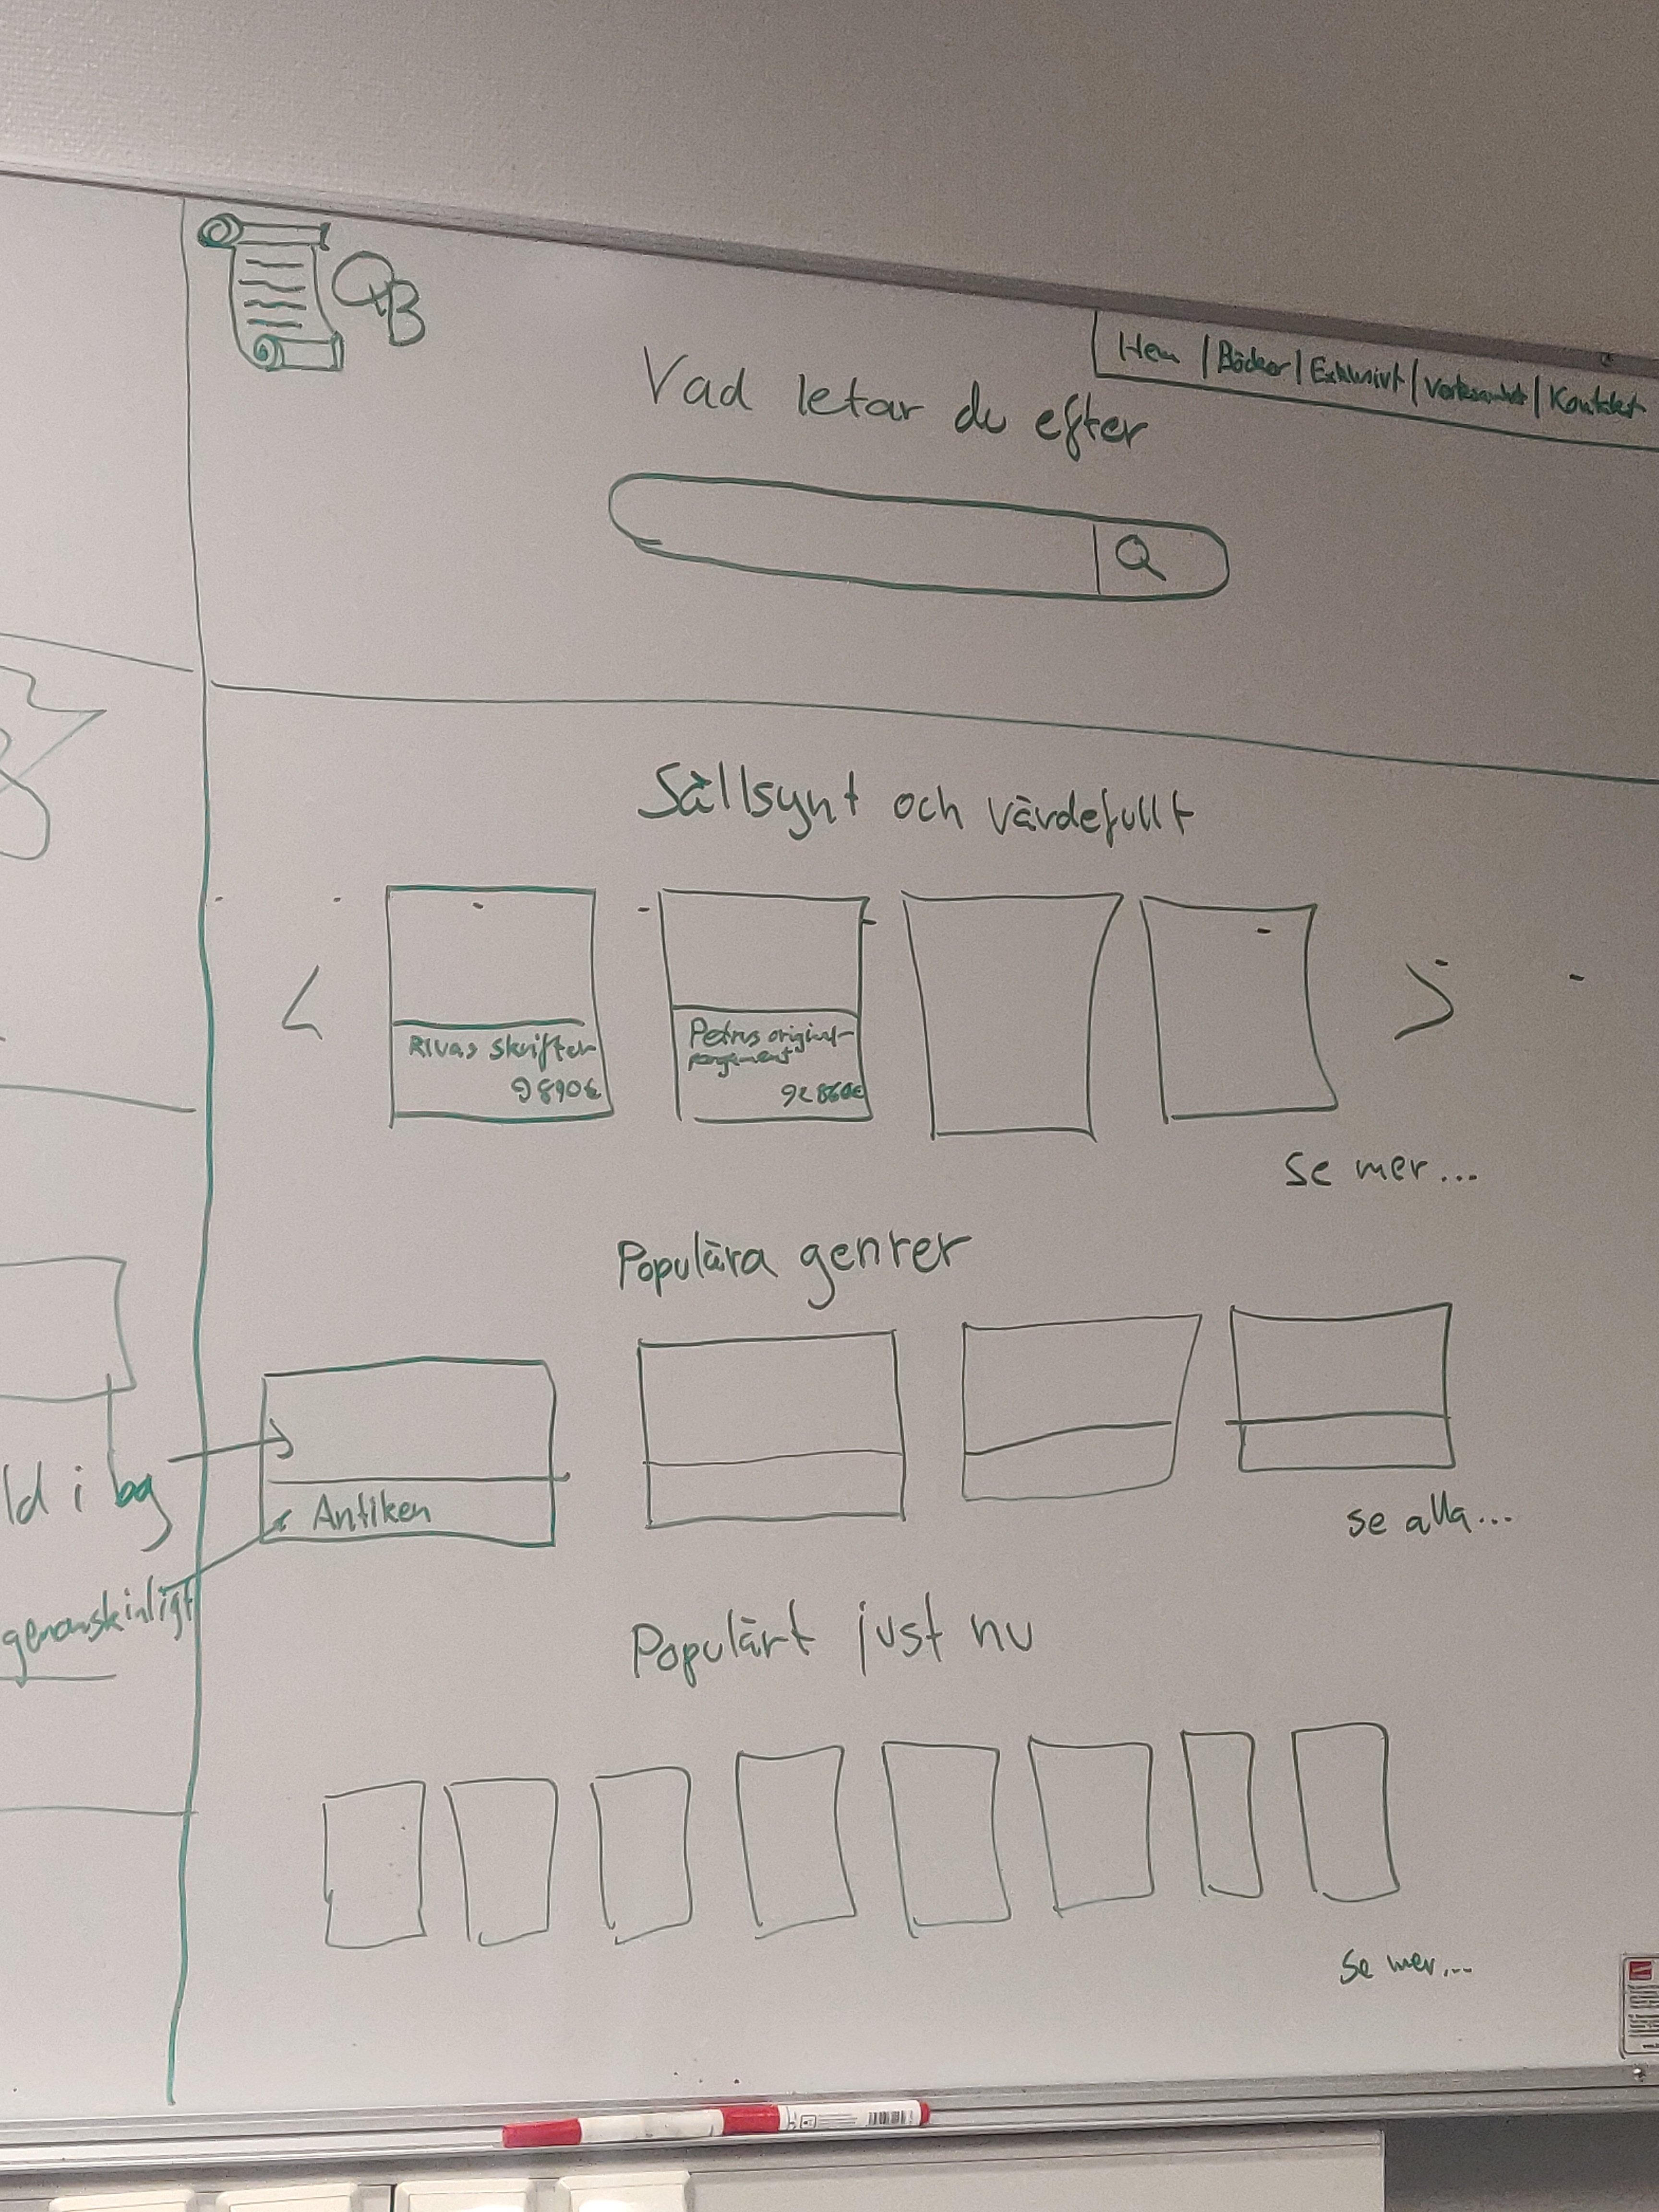 QB
Hem | Böcker | Exklusivt | Verksamhet | Kontakt
Vad letar du efter
Sällsynt och värdefullt
<
Rivas skrifter
9890€
Petrus original-
pergament
92860€
>
se mer...
Populära genrer
ld i bg
Antiken
genomskinligt
se alla...
Populärt just nu
se mer...